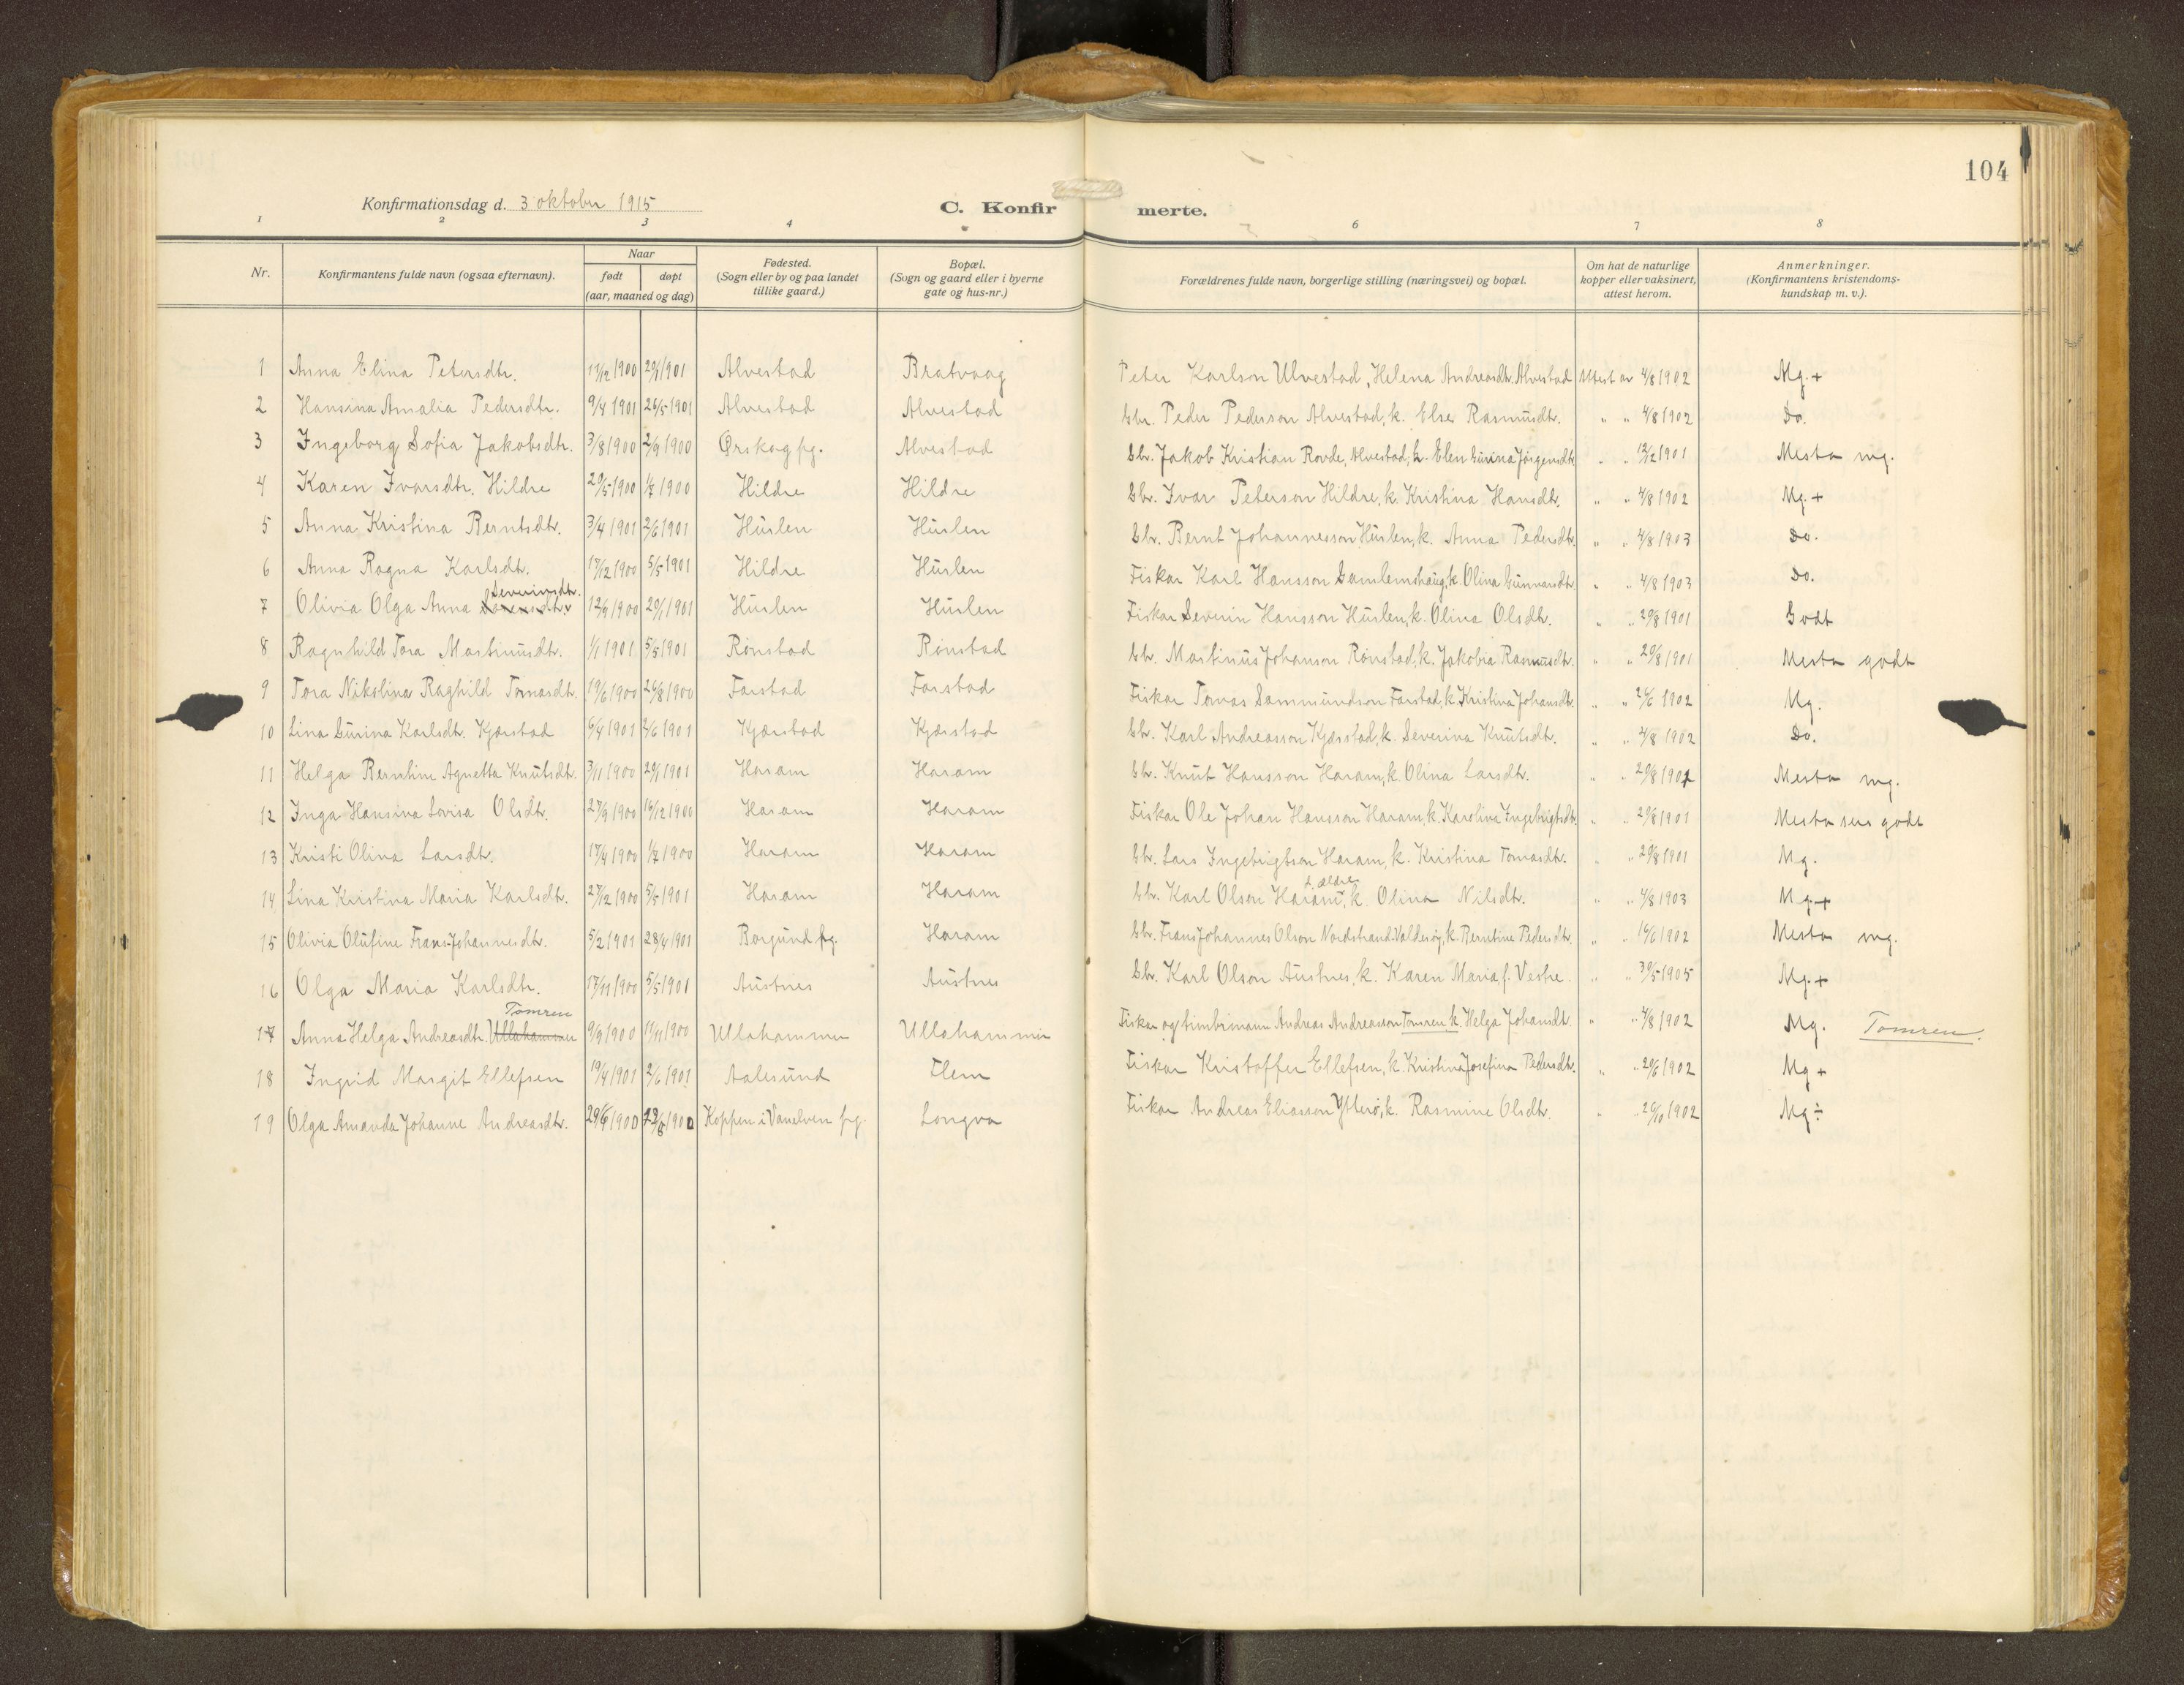 104
Konfirmationsdag d. 3 oktober 1915
C. Konfirmerte.
1 2 3 4 6 7 8
Nr. Konfirmantens fulde navn (ogsaa efternavn). Naar født døpt (aar, maaned og dag) Fødested. (Sogn eller by og paa landet tillike gaard.) Bopæl. (Sogn og gaard eller i byerne gate og hus-nr.) Forældrenes fulde navn, borgerlige stilling (næringsvei) og bopæl. Om hat de naturlige kopper eller vaksinert, attest herom. Anmerkninger. (Konfirmantens kristendomskundskap m. v.).
1 Anna Elina Petersdtr. 11/12 1900 20/1 1901 Alvestad Bratvaag Peter Karlson Ulvestad, Helena Andreasdtr. Alvestad Attest av 4/8 1902 Mg.+
2 Hansina Amalia Pedersdtr. 9/4 1901 26/5 1901 Alvestad Alvestad Gbr. Peder Pederson Alvestad, k. Else Rasmusdtr. " " 4/8 1902 Do.
3 Ingeborg Sofia Jakobsdtr. 3/8 1900 2/9 1900 Ørskog pg. Alvestad Gbr. Jakob Kristian Rovde, Alvestad, k. Elen Gurina Jørgensdtr. " " 12/2 1901 Mesta mg.
4 Karen Ivarsdtr. Hildre 20/5 1900 1/7 1900 Hildre Hildre Gbr. Ivar Peterson Hildre, k. Kristina Hansdtr. " " 4/8 1902 Mg.+
5 Anna Kristina Berntsdtr. 3/4 1901 2/6 1901 Huslen Huslen Gbr. Bernt Johannesson Huslen, k. Anna Pedersdtr. " " 4/8 1903 Do.
6 Anna Ragna Karlsdtr. 17/12 1900 5/5 1901 Hildre Huslen Fiskar Karl Hansson Gamlemshaug, k. Olina Gunnarsdtr. " " 4/8 1903 Do.
Severinsdtr.
7 Olivia Olga Anna 12/9 1900 20/1 1901 Huslen Huslen Fiskar Severin Hansson Huslen, k. Olina Olsdtr. " " 20/8 1901 Godt
8 Ragnhild Tora Martinusdtr. 1/1 1901 5/5 1901 Rønstad Rønstad Gbr. Martinus Johanson Rønstad, k. Jakobia Rasmusdtr. " " 20/8 1901 Mesta godt
9 Tora Nikolina Raghild Tomasdtr. 19/6 1900 26/8 1900 Farstad Farstad Fiskar Tomas Sammundson Farstad, k. Kristina Johansdtr. " " 26/6 1902 Mg.
10 Lina Gurina Karlsdtr. Kjærstad 6/4 1901 2/6 1901 Kjærstad Kjærstad Gbr. Karl Andreasson Kjærstad, k. Severina Knutsdtr. " " 4/8 1902 Do.
11 Helga Berntine Agnetta Knutsdtr. 3/11 1900 20/1 1901 Haram Haram Gbr. Knut Hansson Haram, k. Olina Larsdtr. " " 20/8 1901 Mesta mg.
12 Inga Hansina Lovisa Olsdtr. 27/9 1900 16/12 1900 Haram Haram Fiskar Ole Johan Hansson Haram, k. Karolina Ingebrigtsdtr. " " 20/8 1901 Mesta sers godt
13 Kristi Olina Larsdtr. 17/4 1900 1/7 1900 Haram Haram Gbr. Lars Ingebrigtson Haram, k. Kristina Tomasdtr. " " 20/8 1901 Mg.
d. ældre
14 Lina Kristina Maria Karlsdtr. 27/12 1900 5/5 1901 Haram Haram Gbr. Karl Olson Haram, k. Olina Nilsdtr. " " 4/8 1903 Mg.+
15 Olivia Olufine Frans Johannesdtr. 5/2 1901 28/4 1901 Borgund pg. Haram Gbr. Frans Johannes Olson Nordstrand Valderøy, k. Berntine Pedersdtr. " " 16/6 1902 Mesta mg.
16 Olga Maria Karlsdtr. 17/11 1900 5/5 1901 Austnes Austnes Gbr. Karl Olson Austnes, k. Karen Maria f. Vestre. " " 30/5 1905 Mg.+
Tomren
17 Anna Helga Andreasdtr. Ullahammer 9/9 1900 11/11 1900 Ullahammer Ullahammer Fiskar og timbrimann Andreas Andreasson Tomren, k. Helga Johansdtr. " " 4/8 1902 Mg. Tomren.
18 Ingrid Margit Ellefsen 19/4 1901 2/6 1901 Aalesund Flem Fiskar Kristoffer Ellefsen, k. Kristina Josefina Pedersdtr. " " 26/6 1902 Mg +
19 Olga Amanda Johanne Andreasdtr. 29/6 1900 1900 Koppen i Vanelven pg. Longva Fiskar Andreas Eliasson Ytterø, k. Rasmine Olsdtr. " " 26/10 1902 Mg ÷